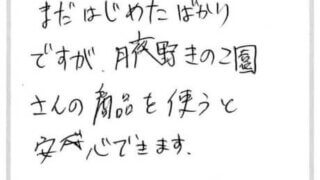 まだはじめたばかり
ですが、月夜野きのこ園
さんの商品を使うと
安心できます.